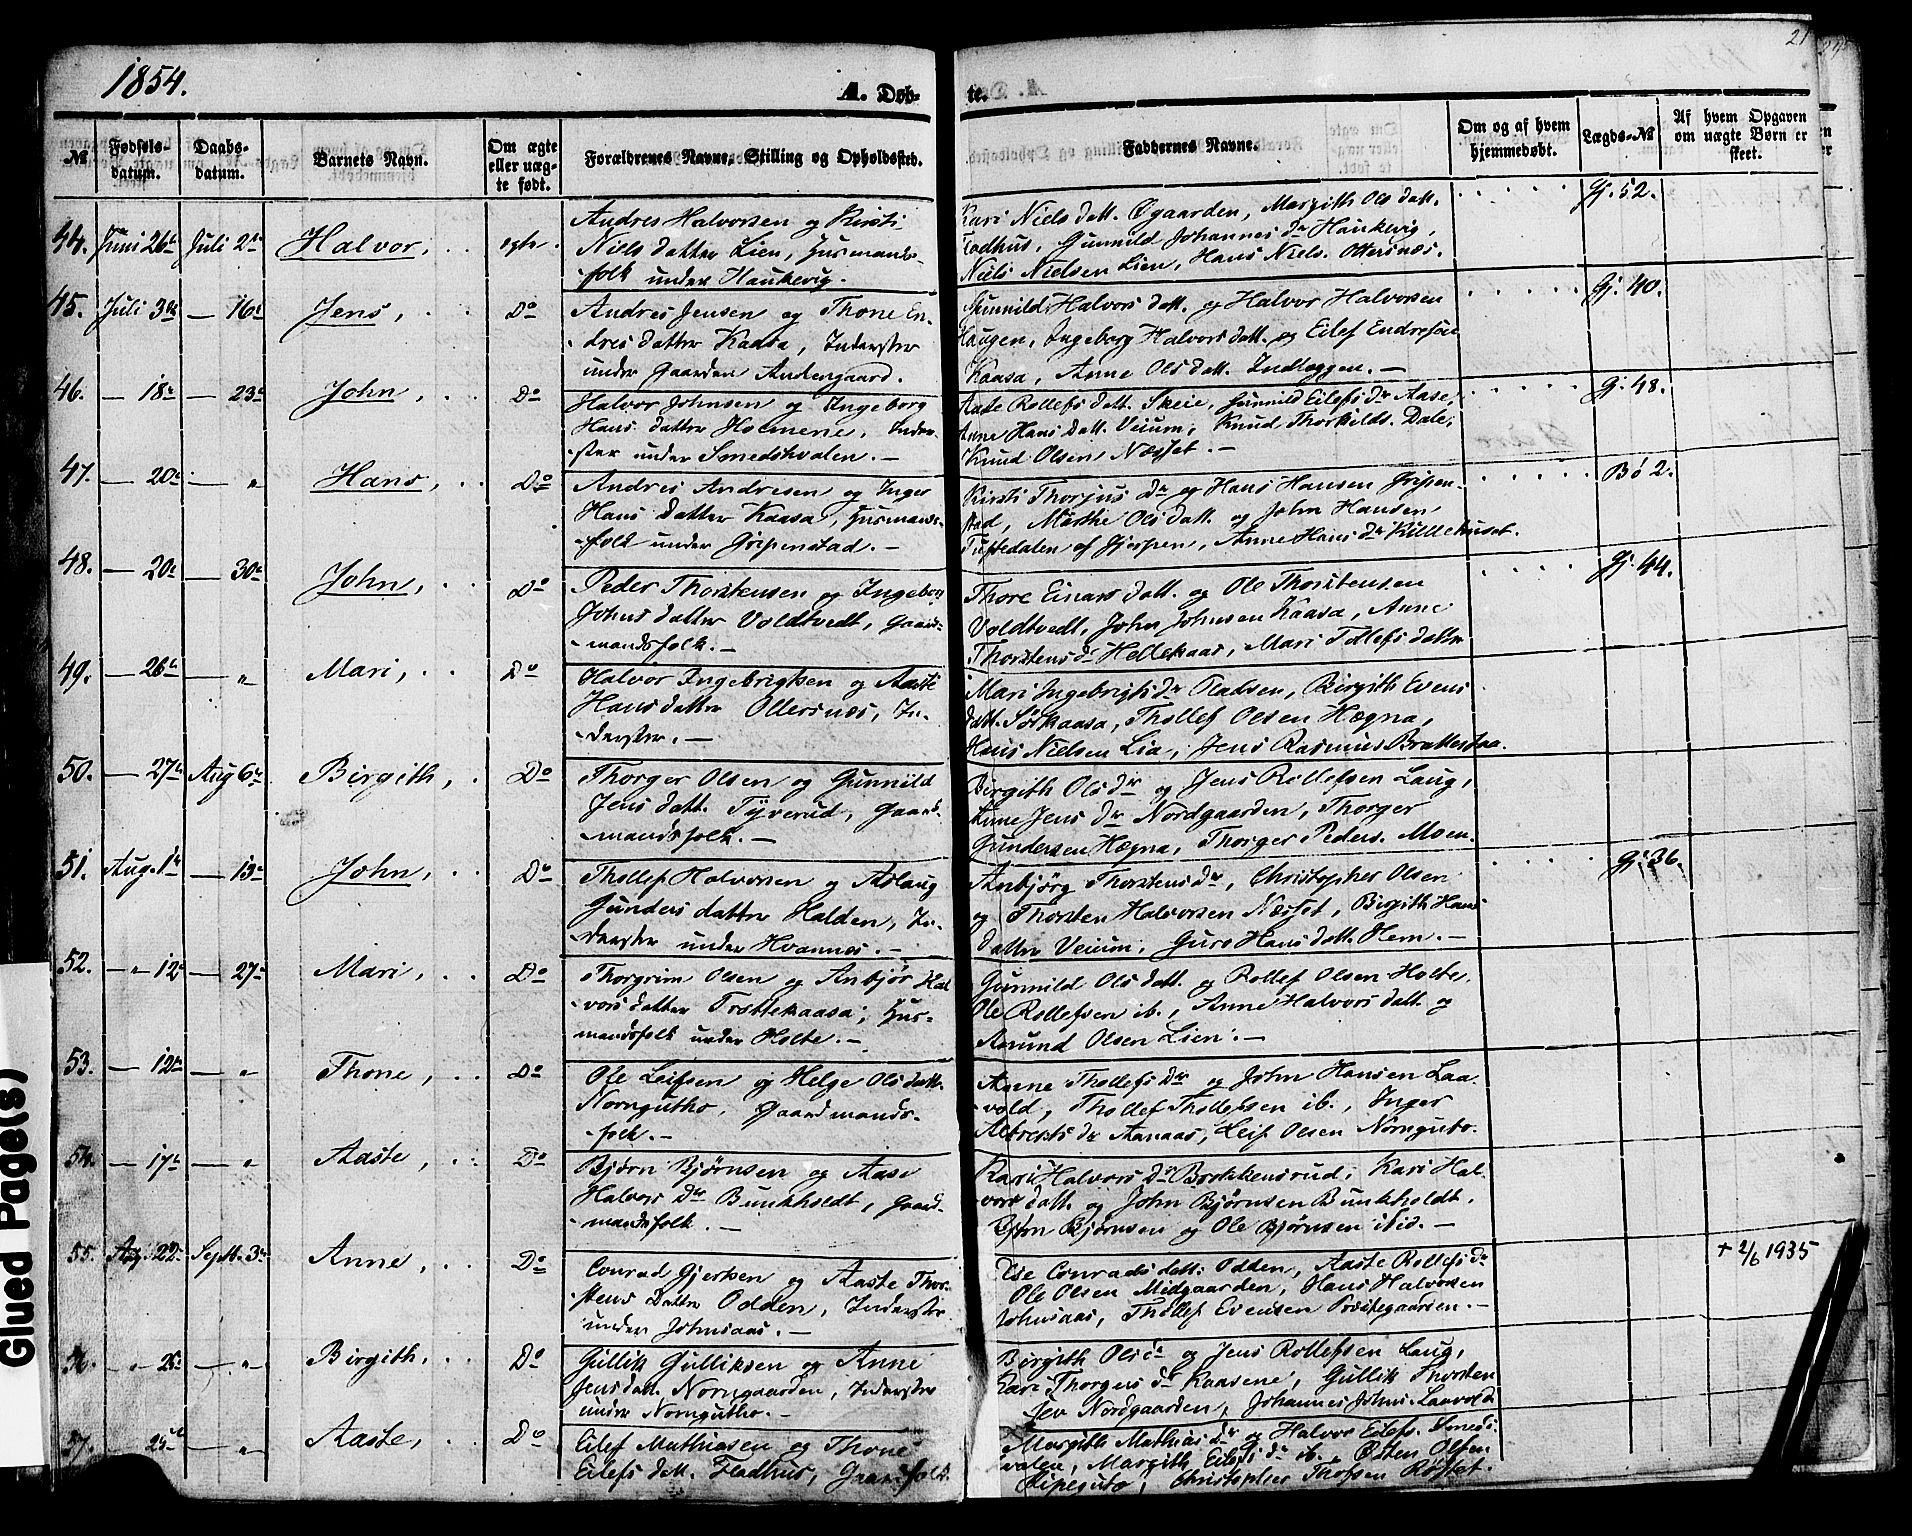 1854.
A. Døb-
te.
21
№
Fødsels-
datum.
Daabs-
datum.
Barnets Navn.
Om ægte
eller uæg-
te født.
Forældrenes Navne, Stilling og Opholdssted.
Faddernes Navne.
Om og af hvem
hjemmedøbt.
Lægds-№
Af hvem Opgaven
om uægte Børn er
skeet.
44. Juni 26de Juli 2de Halvor, egte.
Andres Halvorsen og Kirsti
Niels datter Lien, Husmands-
folk under Haukevig.
Kari Niels datt. Øgaarden, Margith Ols datt.
Fladhus, Gunnild Johannes dr Haukevig,
Niels Nielsen Lien, Hans Niels. Ottersnæs.
Gj. 52.
45. Juli 3die — 16de Jens, Do
Andres Jensen og Thone En-
dres datter Kaasa, Inderster
under Gaarden Andengaard.
Gunnild Halvors datt. og Halvor Halvorsen
Haugen, Ingeborg Halvors datt. og Eilef Endresen
Kaasa, Anne Ols datt. Indlæggen. —
Gj. 40.
46. — 18de — 23de John, Do
Halvor Johnsen og Ingeborg
Hans datter Holmene, Inder-
ster under Smedshvalen. —
Aaste Rollefs datt. Skeie, Gunnild Eilefs dr Aase,
Anne Hans datt. Veium, Knud Thorkilds. Dale,
Knud Olsen Næsset. —
Gj. 48.
47. — 20de — " Hans, Do
Andres Andresen og Inger
Hans datter Kaasa, Husmands-
folk under Gripenstad. —
Kirsti Thorjus dr og Hans Hansen Gripen-
stad, Marthe Ols datt. og John Hansen
Tuftedalen af Gjerpen, Anne Hans dr
Bø 2.
48. — 20de — 30de John, Do
Peder Thorstensen og Ingeborg
Johns datter Voldtvedt, Gaard-
mandsfolk. —
Thore Einars datt. og Ole Thorstensen
Voldtvedt, John Johnsen Kaasa, Anne
Thorstens dr Hellekaas, Mari Tollefs datter
Gj. 44.
49. — 26de — " Mari, Do
Halvor Ingebrigtsen og Aaste
Hans datter Ottersnæs, In-
derster. —
Mari Ingebrigts dr Fladsen, Birgith Evens
datt. Sørkaasa, Thollef Olsen Hægna,
Hans Nielsen Lia, Jens Rasmus Brattestaa.
50. — 27de Aug 6te Birgith, Do
Thorger Olsen og Gunnild
Jens datt. Tyverud, Gaard-
mandsfolk. —
Birgith Ols dr og Jens Rollefsen Laug,
Anne Jens dr Nordgaarden, Thorger
Gundersen Hægna, Thorger Peders. Moen.
51. Aug. 1ste — 13de John, Do
Thollef Halvorsen og Aslaug
Gunders datter Halden, In-
derster under Hvannes. —
Anbjørg Thorstens dr, Christopher Olsen
og Thorsten Halvorsen Næsset, Birgith Hans
datter Veium, Guro Hans datt. Hem. —
Gj. 36.
52. — " 12de — 27de Mari, Do
Thorgrim Olsen og Anbjør Hal-
vors datter Trøttekaasa, Hus-
mandsfolk under Holte. —
Gunnild Ols datt. og Rollef Olsen Holte,
Ole Rollefsen ib., Anne Halvors datt. og
Aamund Olsen Lien. —
53. — 12te — " Thone, Do
Ole Leifsen og Helge Ols datt.
Norngutho, Gaardmands-
folk. —
Anne Thollefs dr og John Hansen Laa-
vold, Thollef Thollefsen ib., Inger
Albrekts dr Aanaas, Leif Olsen Norngutho.
54. — 17de — " Aaste, Do
Bjørn Bjørnsen og Aase
Halvors dr Bunkholdt, Gaard-
mandsfolk. —
Kari Halvors dr Brekkensrud, Kari Hal-
vors datt. og John Bjørnsen Bunkholdt,
Bjørn Bjørnsen og Ole Bjørnsen ibid. —
55. Ag. 22de Septt. 3die Anne, Do
Conrad Gjertsen og Aaste Thor-
stens datter Odden, Inderster
under Johnsaas. —
Else Conrads datt. Odden, Aaste Rollefs dr
Ole Olsen Midgaarden, Hans Halvorsen
Johnsaas, Thollef Evensen Præstegaarden. —
+ 2/6 1935
56. " 25de — " Birgith, Do
Gullik Gulliksen og Anne
Jens datt. Norngaarden, Inderster
under Norngutho. —
Birgith Ols dr og Jens Rollefsen Laug,
Kari Thorgers dr Kaasene, Gullik Thorsten-
sen Nordgaarden, Johannes Johns. Laavold
57. 25de " Aaste, Do
Eilef Mathiasen og Thone
Eilefs datt. Fladhus, Gaardfolk.
Margith Mathias dr og Halvor Eilefs. Smeds-
valen, Margith Eilefs dr ib. Otten Olsen
Christopher Røstet.
Glued Page(s)